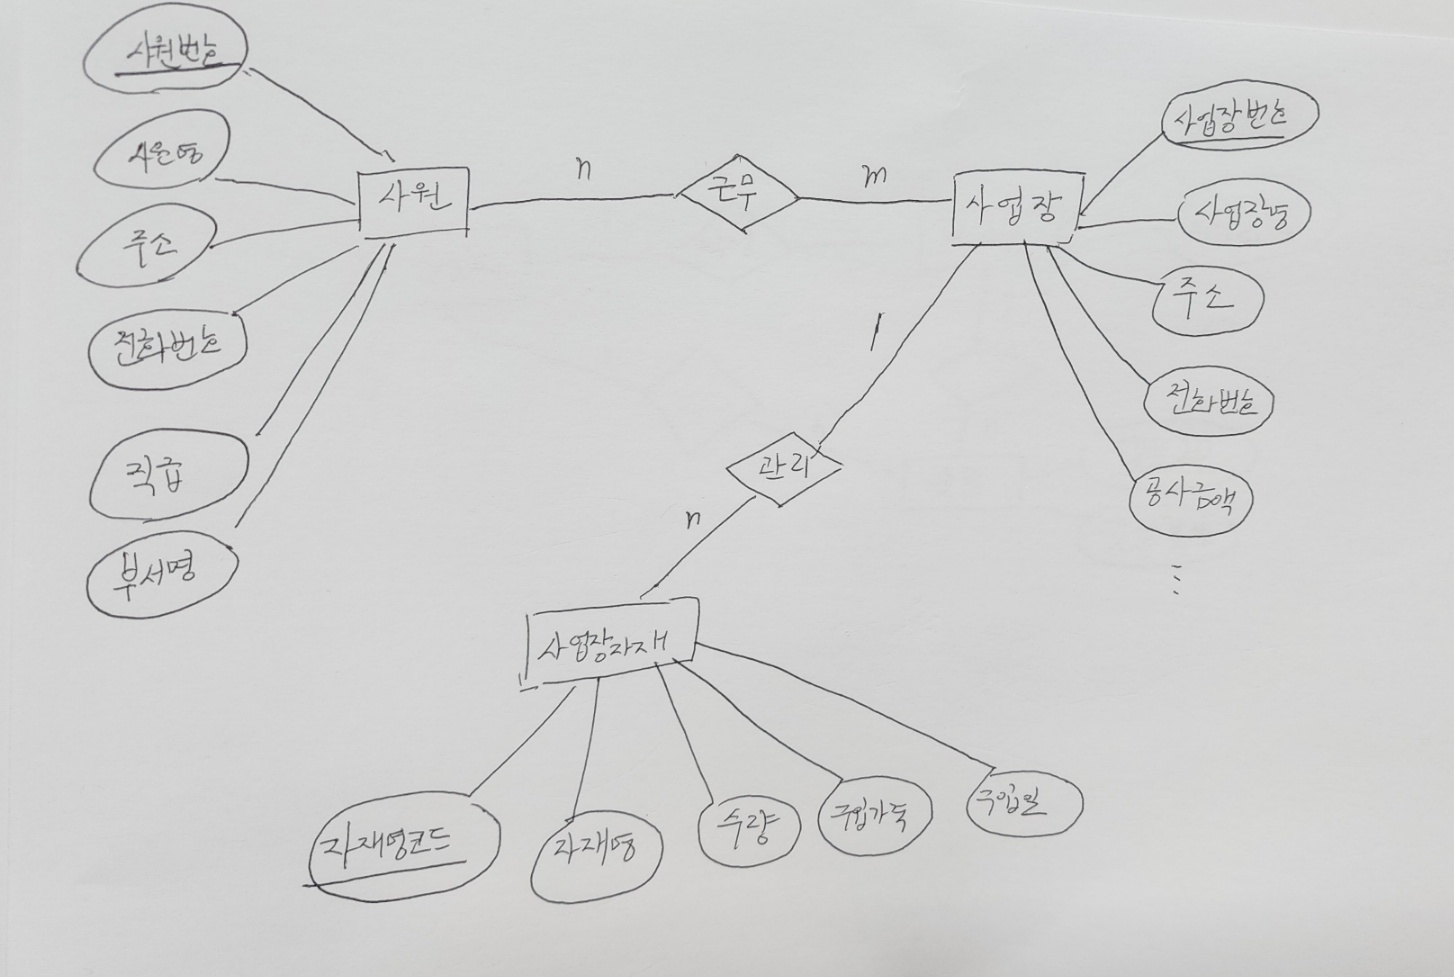 사원번호
사원명
주소
전화번호
직급
부서명
사원
n
근무
m
사업장
사업장번호
사업장명
주소
전화번호
공사금액
⋮
1
관리
n
사업장자재
자재명코드
자재명
수량
구입가격
구입일